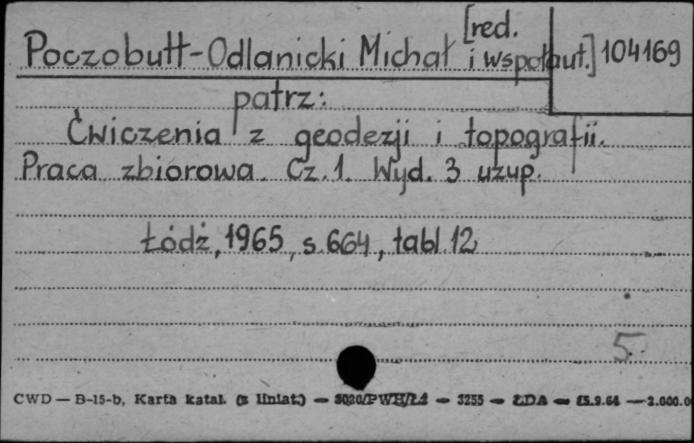 Poczobutt-Odlanicki Michał [red. i współaut.] 104169
patrz:
Ćwiczenia z geodezji i topografii.
Praca zbiorowa. Cz. 1. Wyd. 3 uzup.
Łódź, 1965, s. 664, tabl. 12
5
CWD — B-15-b, Karta katal. (z liniat.) — PWH/Łd — 3255 — ŁDA — 2.000.0